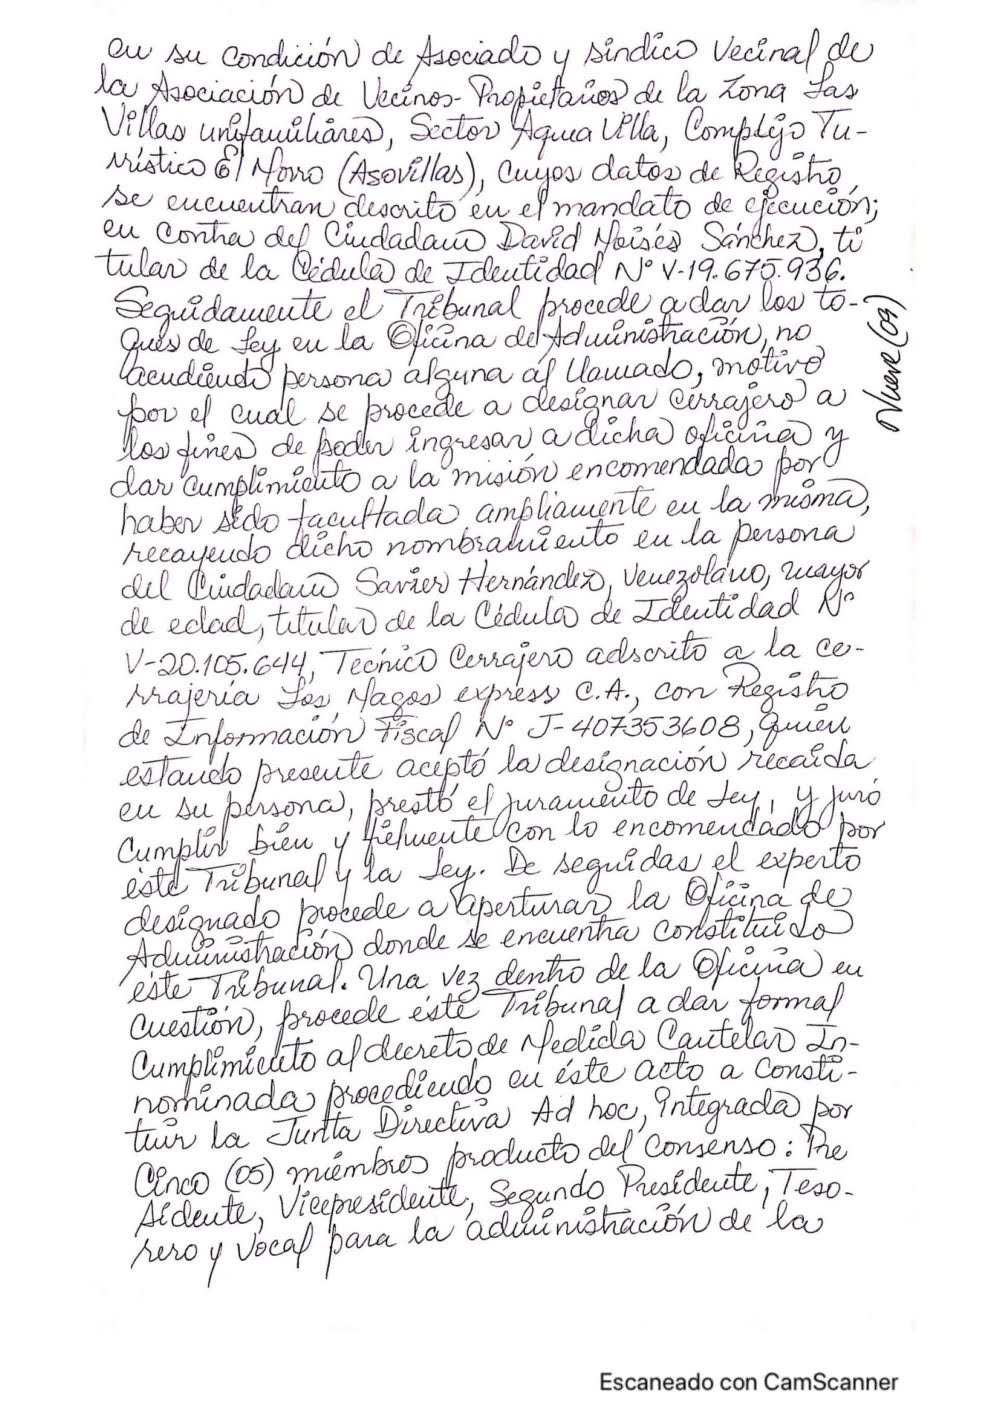 en su Condición de Asociado y síndico Vecinal de
la Asociación de Vecinos-Propietarios de la Zona Las
Villas unifamiliares, Sector Agua Villa, Complejo Tu-
rrístico El Morro (Asovillas), cuyos datos de Registro
se encuentran descrito en el mandato de ejecución;
en contra del Ciudadano David Moisés Sánchez, ti
tular de la Cédula de Identidad Nº V-19.675.936.
Seguidamente el Tribunal procede a dar los to-
ques de Ley en la Oficina de Administración, no
acudiendo persona alguna al llamado, motivo
por el cual se procede a designar cerrajero a
los fines de poder ingresar a dicha oficina y
dar cumplimiento a la misión encomendada por
haber sido facultada ampliamente en la misma,
recayendo dicho nombramiento en la persona
del Ciudadano Savier Hernández, Venezolano, mayor
de edad, titular de la Cédula de Identidad Nº
V-20.105.644, Tecnico Cerrajero adscrito a la ce-
rrajería Los Magos express C.A., con Registro
de Información Fiscal Nº J-407353608, quien
estando presente aceptó la designación recaída
en su persona, prestó el juramento de Ley, y juró
Cumplir bien y fielmente con lo encomendado por
éste Tribunal y la Ley. De seguidas el experto
designado procede a aperturar la Oficina de
Administración donde se encuentra constituido
éste Tribunal. Una vez dentro de la Oficina en
cuestión, procede éste Tribunal a dar formal
Cumplimiento al decreto de Medida Cautelar In-
nominada procediendo en éste acto a Consti-
tuir la Junta Directiva Ad hoc, Integrada por
Cinco (05) miembros producto del Consenso: Pre
sidente, Vicepresidente, Segundo Presidente, Teso-
rero y Vocal para la administración de la
Nueve (09)
Escaneado con CamScanner